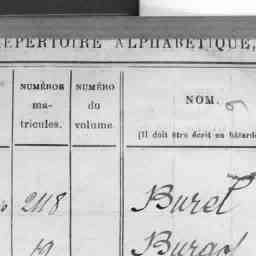 RÉPERTOIRE ALPHABÉTIQUE,
NUMÉROS
ma-
tricules.
NUMÉRO
du
volume.
NOM.
(Il doit être écrit en bâtarde
2118 Burel